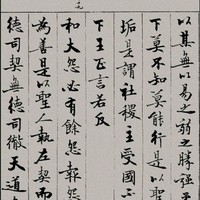 以其無以易之弱之勝強
下莫不知莫能行是以聖
垢是謂社稷主受國不
下王正言若反
和大怨必有餘怨報怨
為善是以聖人執左契而
德司契無德司徹天道